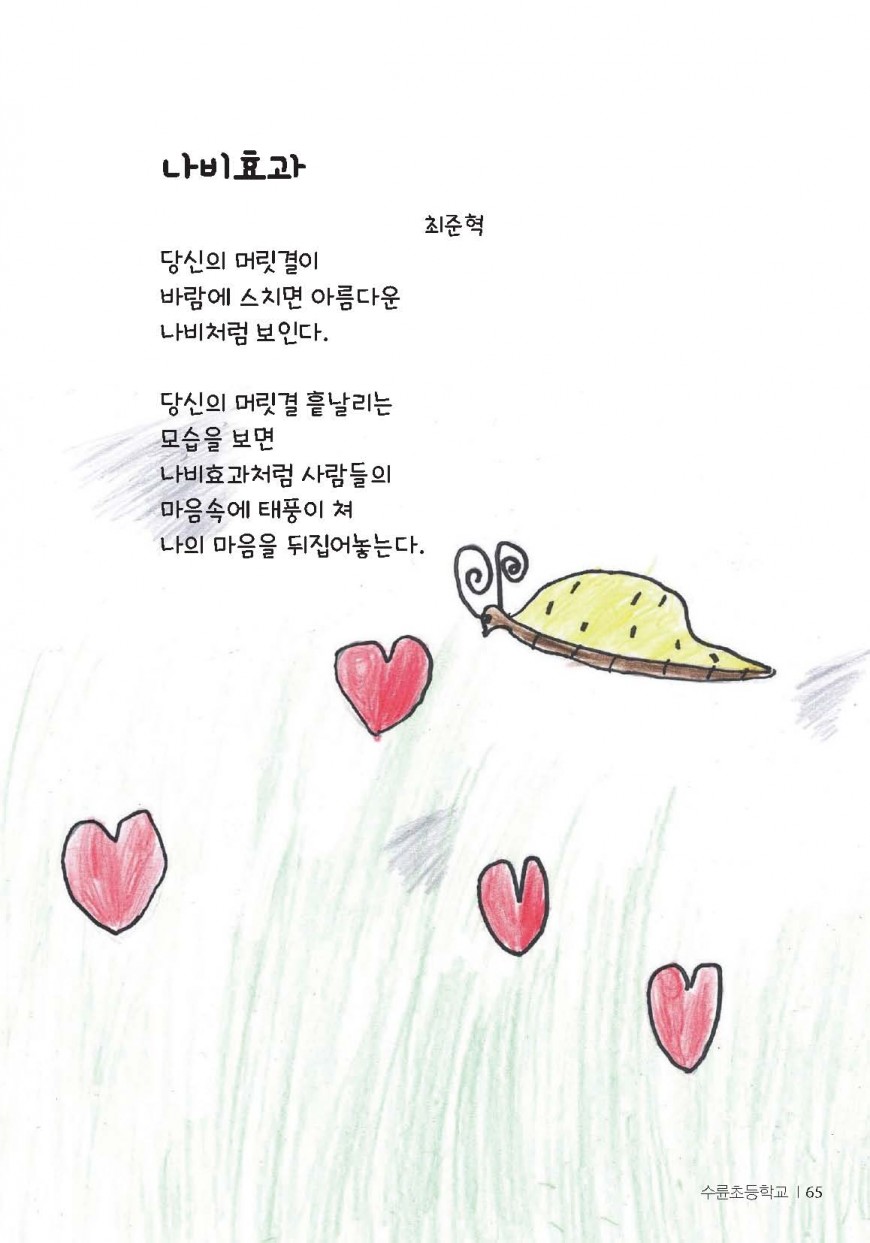 나비효과
최준혁
당신의 머릿결이
바람에 스치면 아름다운
나비처럼 보인다.
당신의 머릿결 흩날리는
모습을 보면
나비효과처럼 사람들의
마음속에 태풍이 쳐
나의 마음을 뒤집어놓는다.
수륜초등학교 | 65